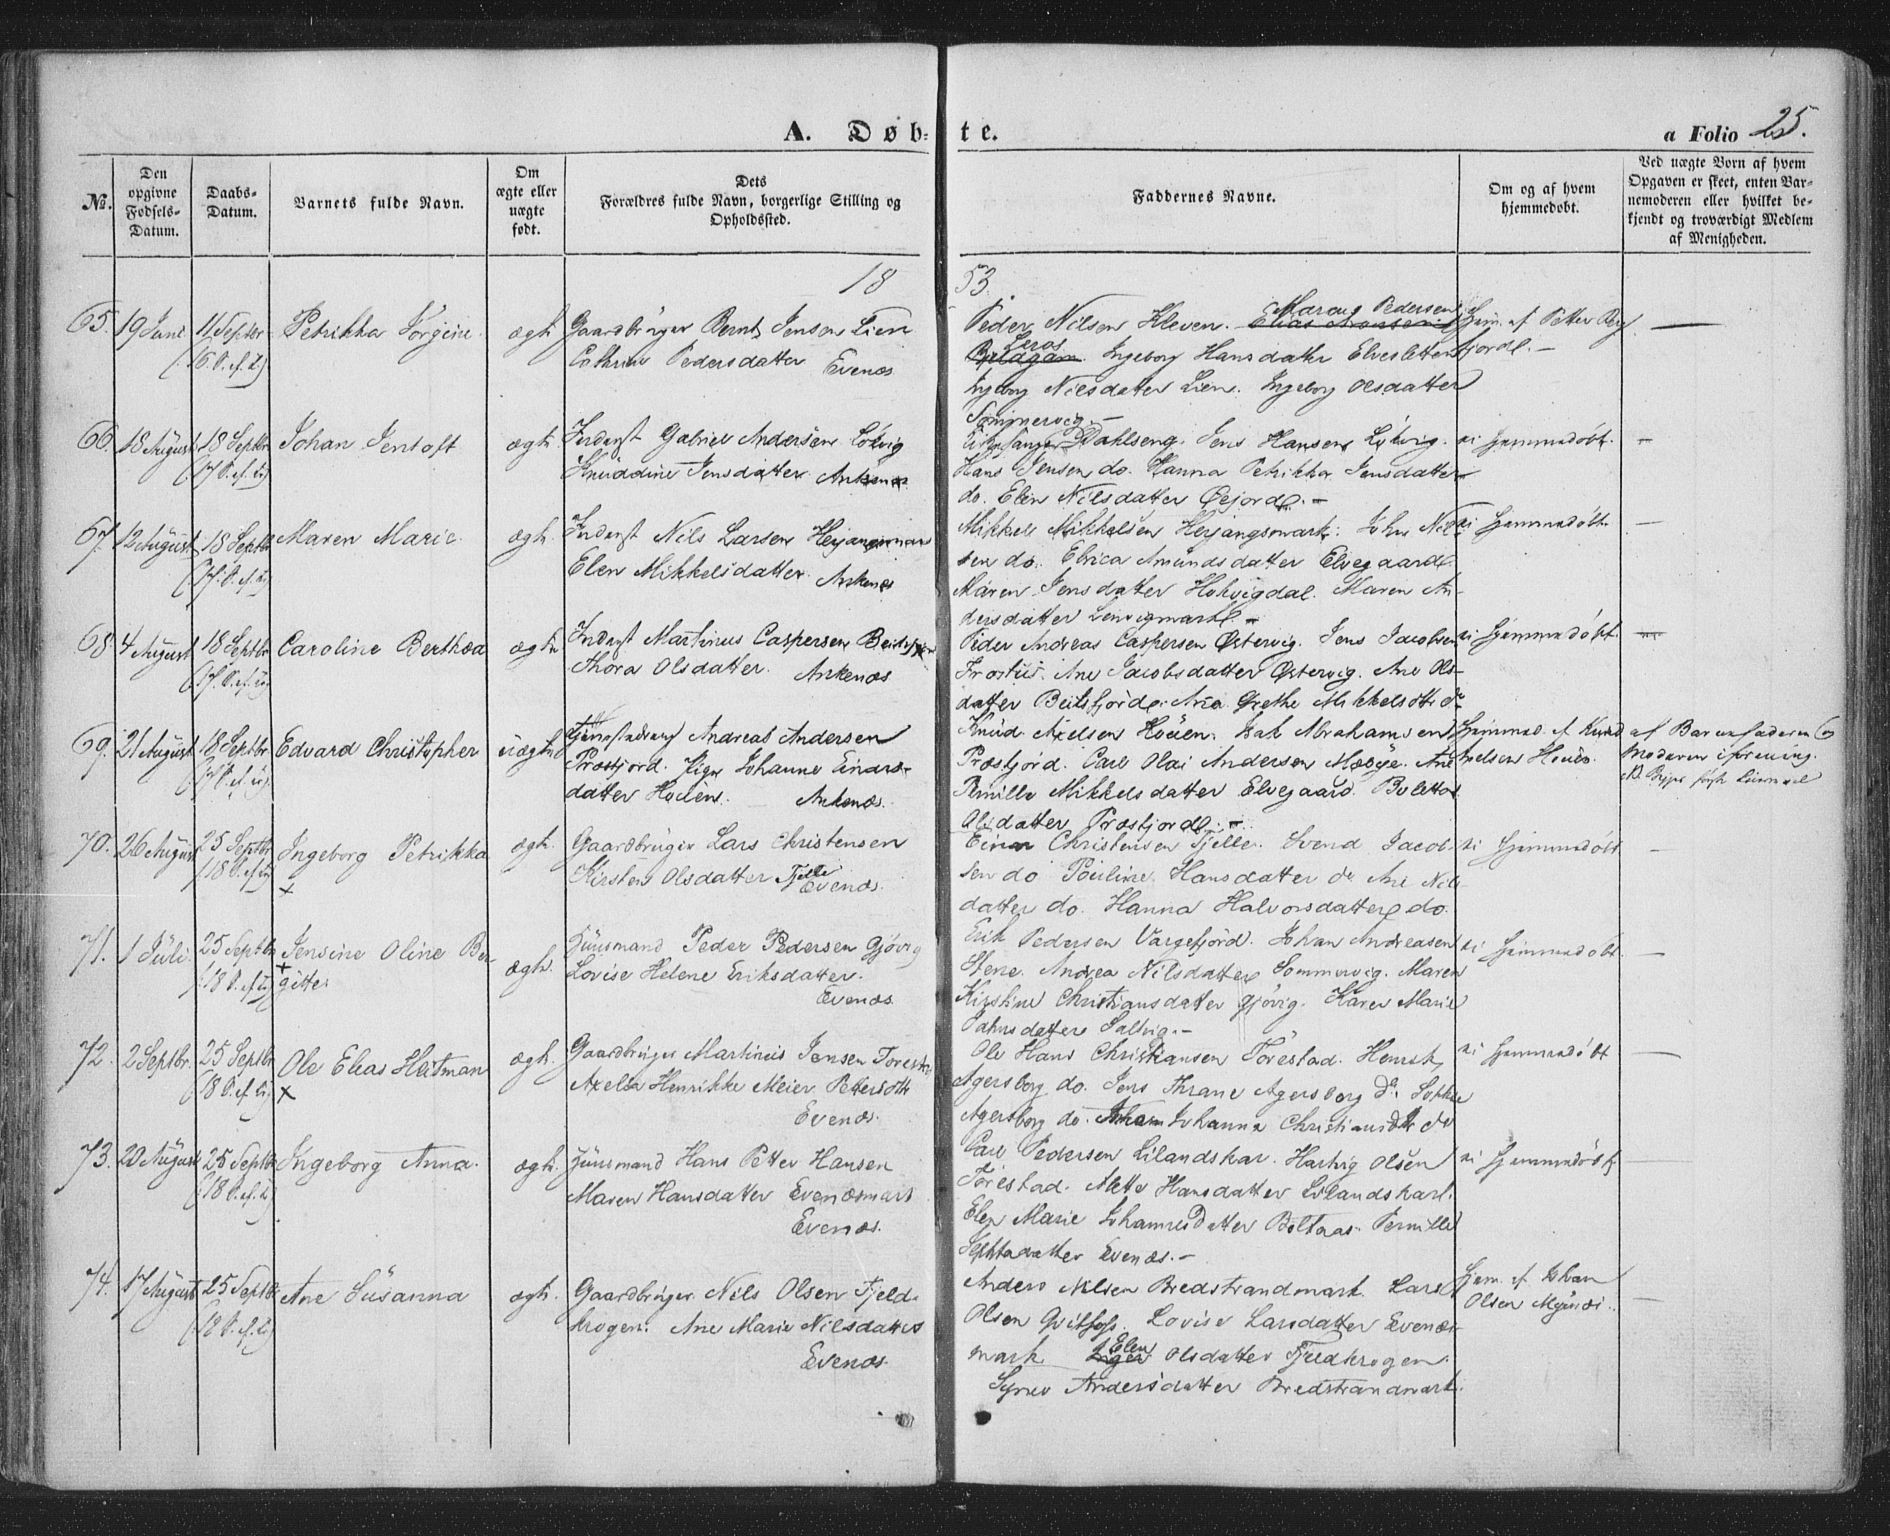 A. Døb-
te.
a Folio 25.
No.
Den opgivne Fødsels-Datum.
Daabs-Datum.
Barnets fulde Navn.
Om ægte eller uægte født.
Dets Forældres fulde Navn, borgerlige Stilling og Opholdssted.
Faddernes Navne.
Om og af hvem hjemmedøbt.
Ved uægte Børn af hvem Opgaven er skeet, enten Barnemoderen eller hvilket bekjendt og troværdigt Medlem af Menigheden.
18
53.
65. 19 Juni 11 Septbr Petrikka Jørgine ægt. Gaardbruger Bernt Jensen Lien
Cathrine Pedersdatter Evenæs
Peder Nilsen Kleven. Marcus Pedersen
Ingeborg Hansdatter Elvesletten
Ingborg Nilsdatter Lien. Ingeborg Olsdatter
Sommervig.-
Hjem. af Petter Berg
fjord.-
66. 18 August 18 Septbr Johan Jentoft ægt. Inderst Gabriel Andersen
Knuddine Jensdatter Ankenæs
Kirkesanger Dahlseng. Jens Hansen
Hans Jensen do. Hanna Petrikka Jensdatter
do. Elen Nilsdatter Øijord.-
ei hjemmedøbt.
67. 12 August 18 Septbr Maren Marie ægt. Inderst Nils Larsen Herjangsmark
Elen Mikkelsdatter Ankenæs
Mikkel Mikkelsen Herjangsmark. John Nil-
sen do. Elrica Amundsdatter Elvegaard.
Maren Jensdatter Hakvigdal. Maren An-
dersdatter Lenvigmark.-
ei hjemmedøbt.
68. 4 August 18 Septbr Caroline Berthea ægt. Inderst Martinus Caspersen Beitsfjord
Thora Olsdatter. Ankenæs
Peder Andreas Caspersen Østervig. Jens Jacobsen
Ane Jacobsdatter Østervig. Ane Ols-
datter Beitsfjord. Ana Grethe Mikkelsdtt do
ei hjemmedøbt.
69. 21 August 18 Septbr Edvard Christopher uægt. Andreas Andersen
Præstfjord. Pige Johanne Einars-
datter Hodens. Ankenæs.
Knud Axelsen Isak Abrahamsen
Præsfjord. Carl Olai Andersen Ane
Pernille Mikkelsdatter Elvegaard. Bolette
Olsdatter Præsfjord.-
Hjemmed. af Knud
Axelsen
af Barnefaderen og
Moderen i forening.
70. 26 August 25 Septbr Ingeborg Petrikka ægt. Gaardbruger Lars Christensen
Kirsten Olsdatter Fjelle
Evenæs.
Einar Christensen Fjelle. Svend Jacob-
sen do Pauline Hansdatter do Ane Nils-
datter do. Hanna Halvorsdatter do.
ei hjemmedøbt
71. 1 Juli 25 Septbr Jensine Oline Ber-
gitte ægt. Huusmand Peder Pedersen Gjøvig
Lovise Helene Eriksdatter.
Evenæs
Erik Pedersen Vargefjord. Johan Andreasen
Stene. Andrea Nilsdatter Sommervig. Maren
Kirstine Christiansdatter Gjøvig. Karen Marie
ei hjemmedøbt.
72. 2 Septbr. 25 Septbr Ole Elias Heitman ægt. Gaardbruger Martinus Jensen Forestad
Axelia Henrikke Meier Petersdtt
Evenæs.
Ole Hans Christiansen Forestad. Henrik
Agersborg do. Jens Thrane Agersborg do. Sophie
Agersborg do. Johanna Christiansdtt do
ei hjemmedøbt
73. 20 August 25 Septbr Ingeborg Anna. ægt. Huusmand Hans Petter Hansen
Maren Hansdatter Evenæsmark
Evenæs.
Carl Pedersen Lilandskar. Hartvig Olsen
Forestad. Mette Hansdatter Lilandskar.
Elen Marie Johannesdatter Boltaas. Pernille
Evenæs.-
ei hjemmedøbt
74. 17 August 25 Septbr Ane Susanna ægt. Gaardbruger Nils Olsen Fjeld-
krogen. Ane Marie Nilsdatter
Evenæs.
Anders Nilsen Bredstrandmark. Lars
Olsen Lovise Larsdatter Evenæs-
mark Elen Olsdatter Fjeldkrogen.
Andersdatter Bredstrandmark.
Hjem. af Johan
Olsen